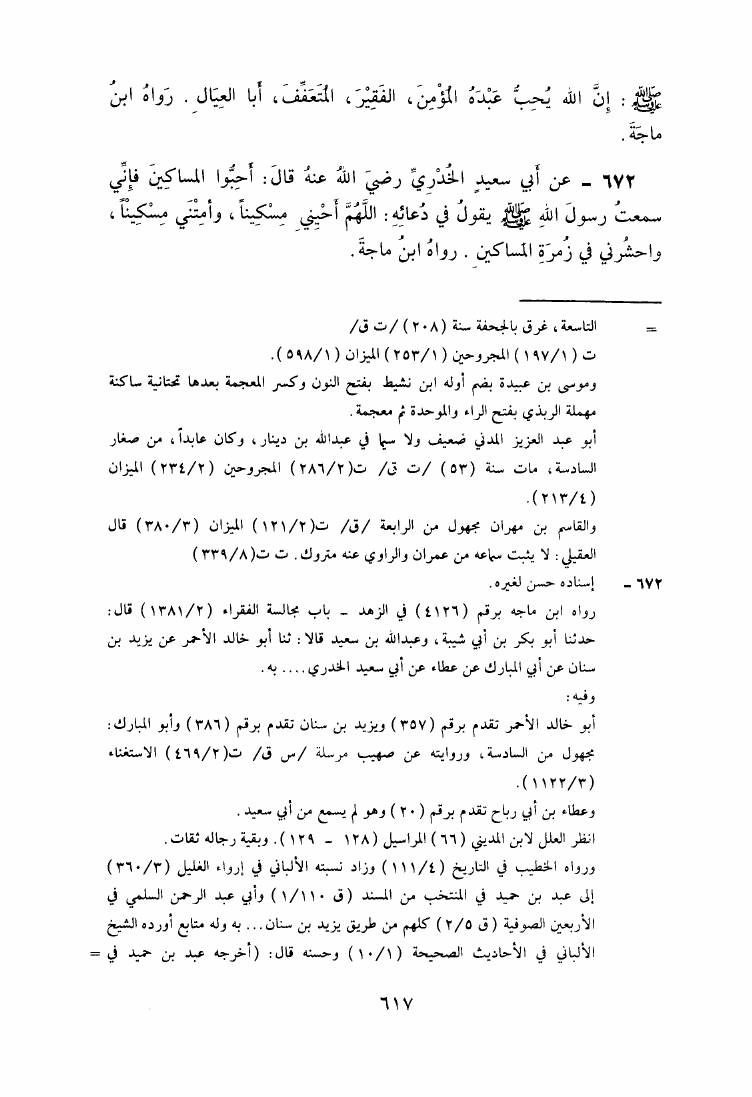 ﷺ : إِنَّ الله يُحِبُّ عَبْدَهُ الْمُؤْمِنَ، الفَقِيْرَ، الْمُتَعَفِّفَ، أَبا العِيَالِ . رَواهُ ابنُ
ماجَةَ .
٦٧٢ – عن أَبي سعيدٍ الخُدْرِيِّ رضيَ اللهُ عنهُ قالَ: أَحِبُّوا المساكينَ فإنِّي
سمعتُ رسولَ اللهِ ﷺ يقولُ في دُعائِهِ: اللَّهُمَّ أَحْيِنِي مِسْكِيناً، وأَمِتْنِي مِسْكِيناً،
واحشُرني في زُمرَةِ المَساكينِ . رواهُ ابنُ ماجةَ .
= التاسعة، غرق بالجحفة سنة (٢٠٨) /ت ق/
ت (١٩٧/١) المجروحين (٢٥٣/١) الميزان (٥٩٨/١).
وموسى بن عبيدة بضم أوله ابن نشيط بفتح النون وكسر المعجمة بعدها تحتانية ساكنة
مهملة الربذي بفتح الراء والموحدة ثم معجمة.
أبو عبد العزيز المدني ضعيف ولا سيما في عبدالله بن دينار، وكان عابداً، من صغار
السادسة، مات سنة (٥٣) /ت ق/ ت(٢٨٦/٢) المجروحين (٢٣٤/٢) الميزان
(٢١٣/٤).
والقاسم بن مهران مجهول من الرابعة /ق/ ت(١٢١/٢) الميزان (٣٨٠/٣) قال
العقيلي: لا يثبت سماعه من عمران والراوي عنه متروك. ت ت(٣٣٩/٨)
٦٧٢ – إسناده حسن لغيره.
رواه ابن ماجه برقم (٤١٢٦) في الزهد – باب مجالسة الفقراء (١٣٨١/٢) قال:
حدثنا أبو بكر بن أبي شيبة، وعبدالله بن سعيد قالا: ثنا أبو خالد الأحمر عن يزيد بن
سنان عن أبي المبارك عن عطاء عن أبي سعيد الخدري.... به.
وفيه:
أبو خالد الأحمر تقدم برقم (٣٥٧) ويزيد بن سنان تقدم برقم (٣٨٦) وأبو المبارك:
مجهول من السادسة، وروايته عن صهيب مرسلة /س ق/ ت(٤٦٩/٢) الاستغناء
(١١٢٢/٣).
وعطاء بن أبي رباح تقدم برقم (٢٠) وهو لم يسمع من أبي سعيد.
انظر العلل لابن المديني (٦٦) المراسيل (١٢٨ – ١٢٩). وبقية رجاله ثقات.
ورواه الخطيب في التاريخ (١١١/٤) وزاد نسبته الألباني في إرواء الغليل (٣٦٠/٣)
إلى عبد بن حميد في المنتخب من المسند (ق ١/١١٠) وأبي عبد الرحمن السلمي في
الأربعين الصوفية (ق ٢/٥) كلهم من طريق يزيد بن سنان... به وله متابع أورده الشيخ
الألباني في الأحاديث الصحيحة (١٠/١) وحسنه قال: (أخرجه عبد بن حميد في =
٦١٧